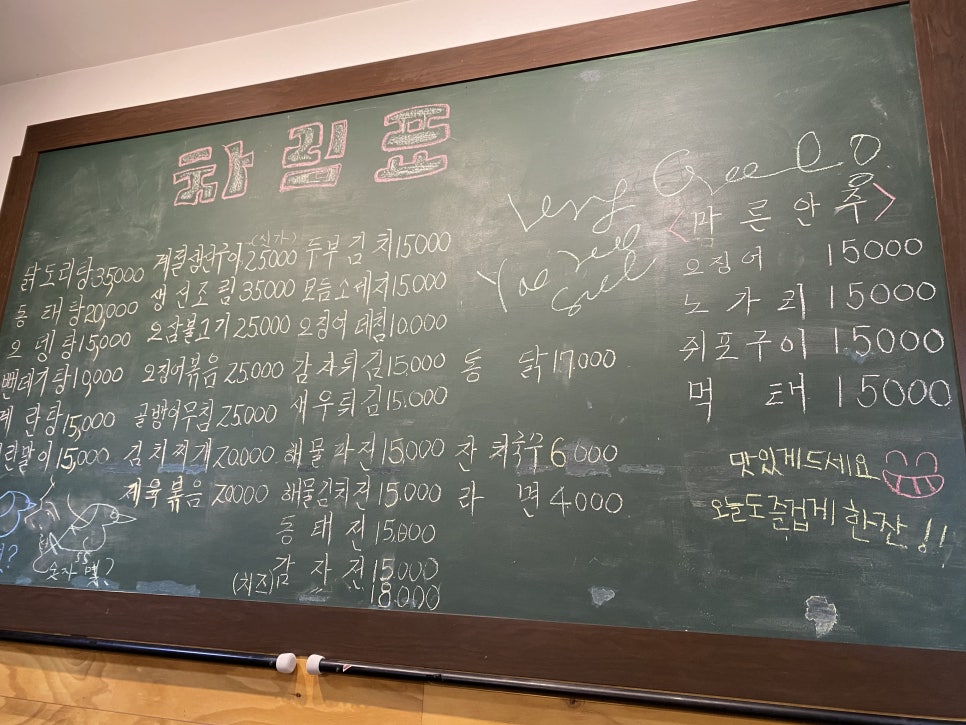 차림표
Very Good
You feel
Good
닭도리탕 35,000
동태탕 20,000
오뎅탕 15,000
뻔데기탕 10,000
계란탕 15,000
란말이 15,000
(싯가)
계절생선구이 25000
생선조림 35000
오삼불고기 25000
오징어볶음 25.000
골뱅이무침 25000
김치찌개 20.000
제육볶음 20000
두부김치 15000
모듬소세지 15.000
오징어데침 10.000
감자튀김 15,000
새우튀김 15,000
해물파전 15000
해물김치전 15,000
동태전 15,000
감자전 15,000
(치즈) 18,000
통닭 17,000
잔치국수 6000
라면 4000
<마른안주>
오징어 15000
노가리 15000
쥐포구이 15000
먹태 15000
맛있게드세요
오늘도즐겁게한잔!!